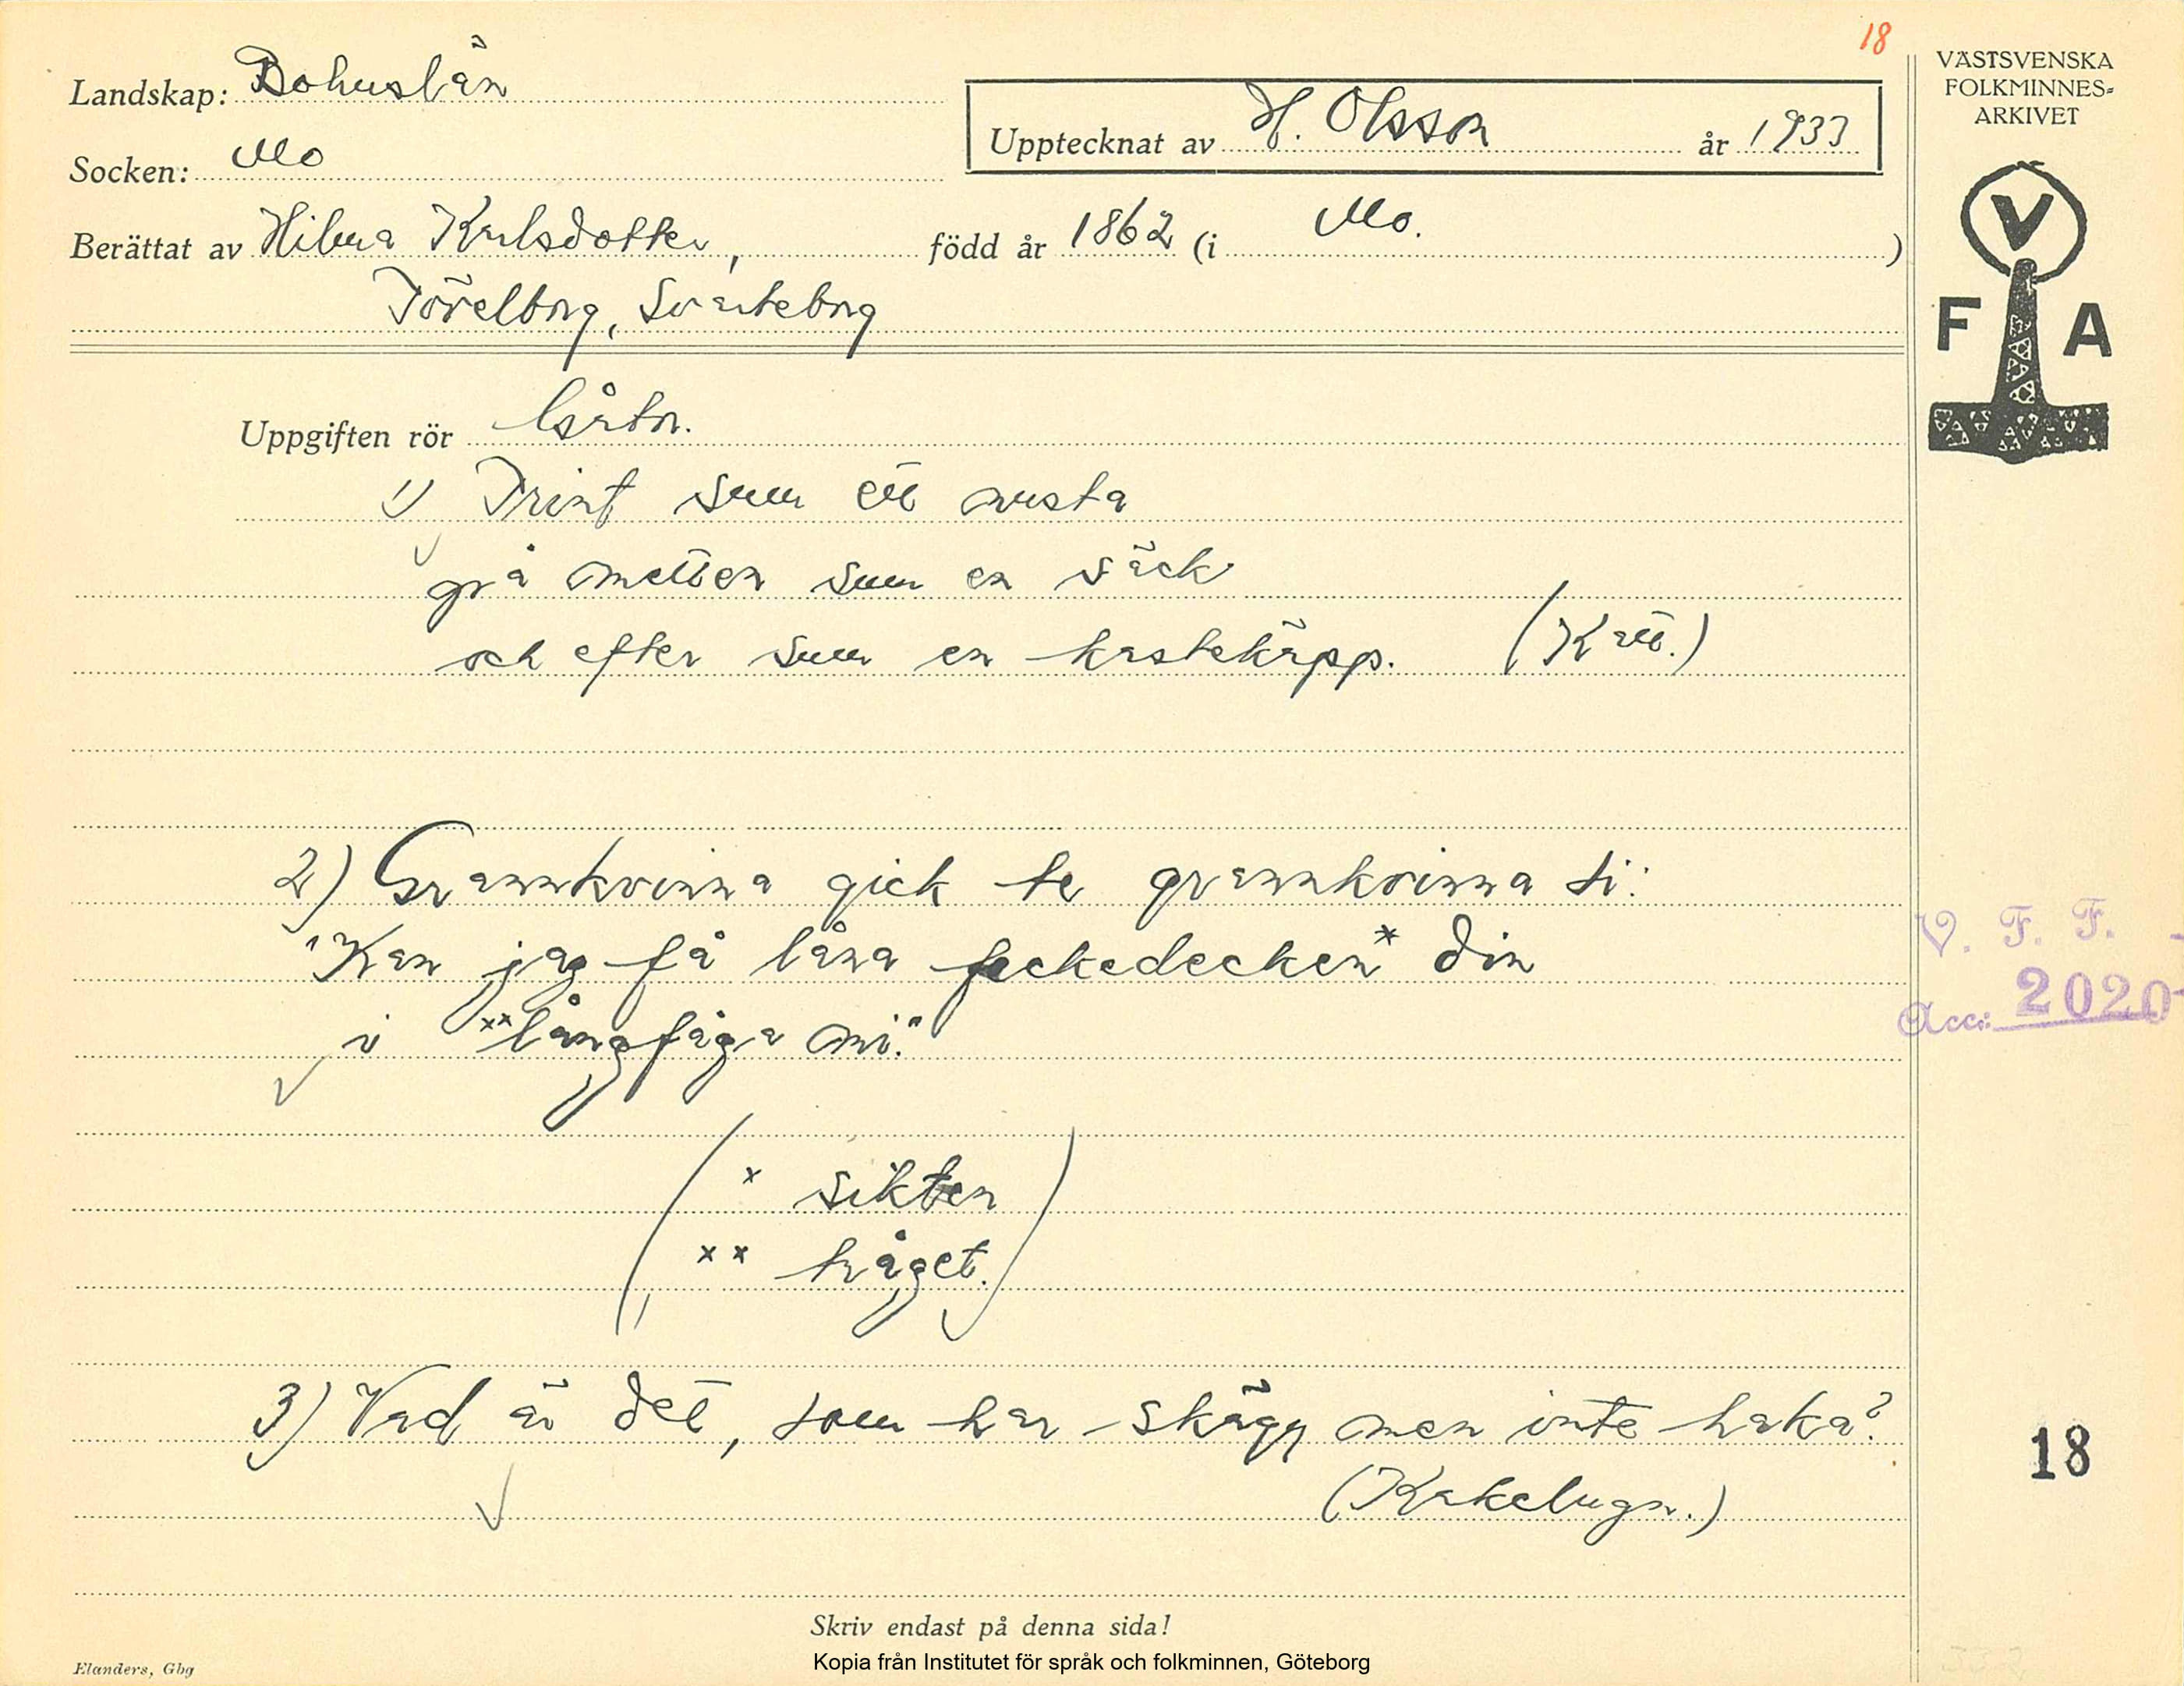 18
VÄSTSVENSKA
FOLKMINNES-
ARKIVET
Landskap: Bohuslän
Upptecknat av H. Olsson år 1933
Socken: Mo
Berättat av Hilma Karlsdotter, född år 1862 (i Mo.)
Törelborg, Svarteborg
V
F A
Uppgiften rör Gåtor.
1) Trint som ett
på mitten som en säck
och efter som en kastekäpp. (Katt.)
2) Grannkvinna gick te grannkvinna si:
"Kan jag få låna feckedecken* din
i **långfåga mi."
V. F. F.
Acc. 2020
(* sikten
** tråget.)
3) Vad är det, som har skägg men inte haka?
(Kakelugn.)
18
Skriv endast på denna sida!
Kopia från Institutet för språk och folkminnen, Göteborg
Elanders, Gbg